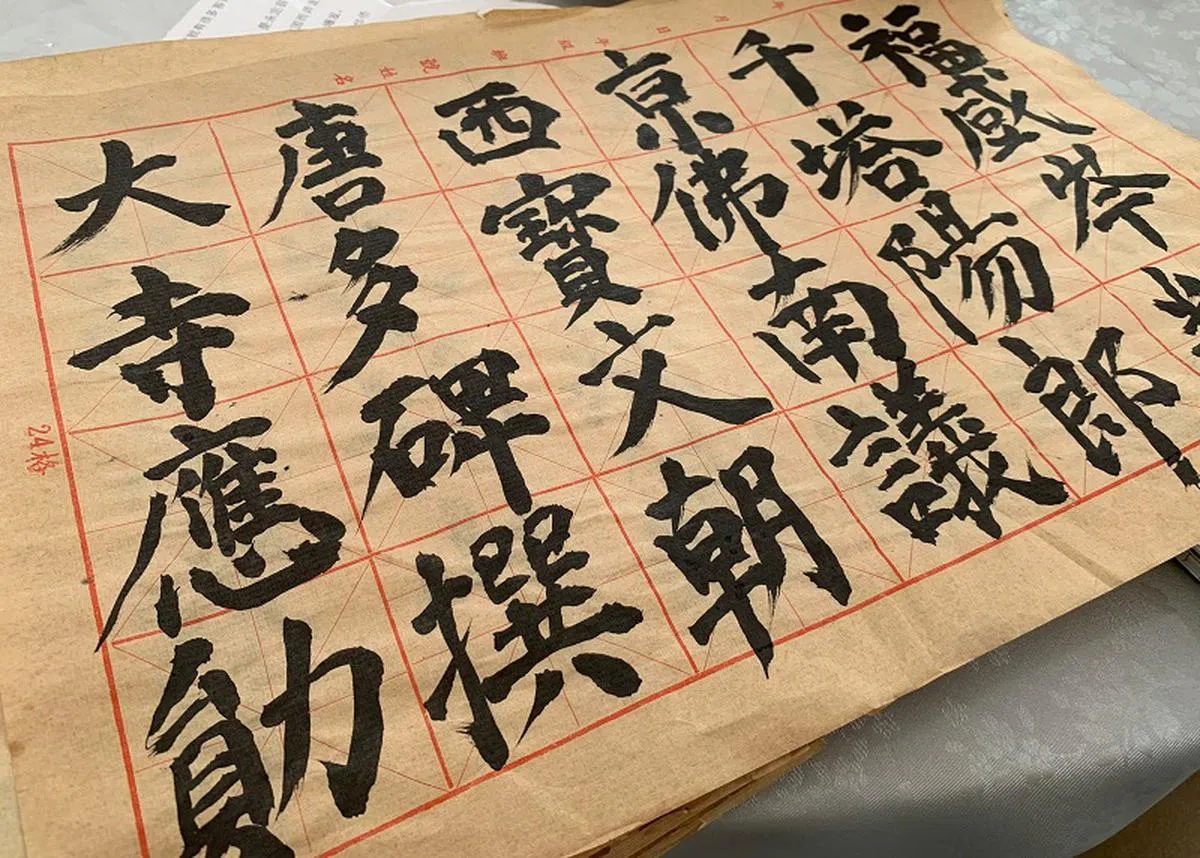 月 日 號 姓名
大唐西京千福
寺多寶佛塔感
應碑文南陽岑
勛撰朝議郎
24格